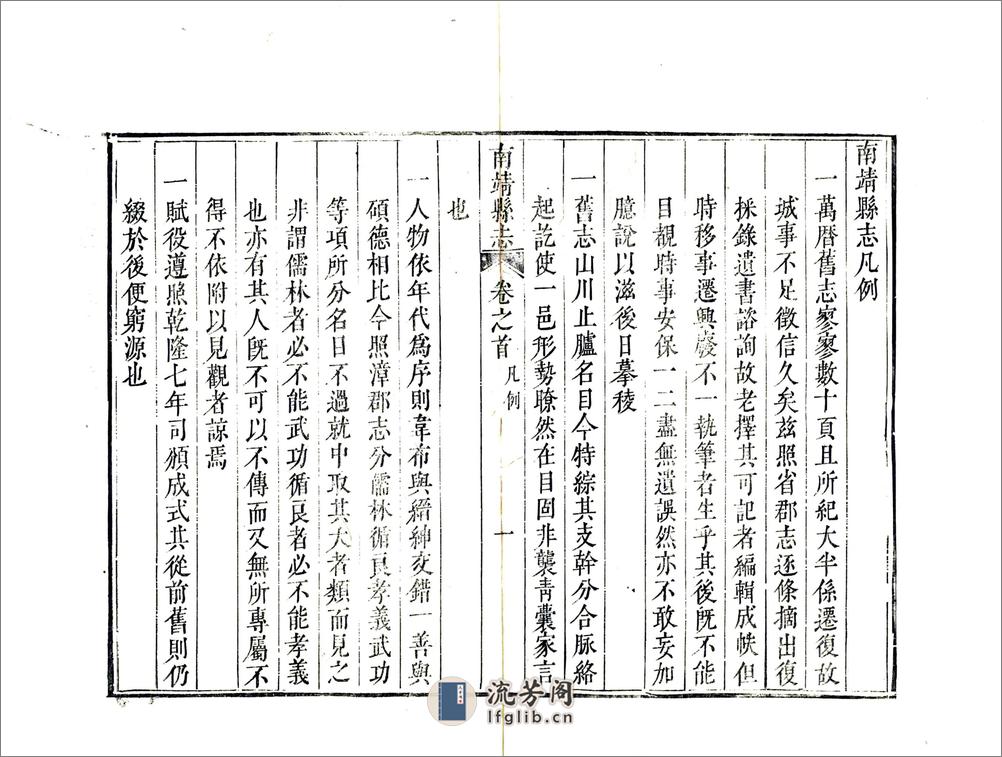 南靖縣志凡例
一萬曆舊志寥寥數十頁且所紀大半係遷復故
城事不足徵信久矣茲照省郡志逐條摘出復
採錄遺書諮詢故老擇其可記者編輯成帙但
時移事遷興廢不一執筆者生乎其後旣不能
目覩時事安保一二盡無遺誤然亦不敢妄加
臆說以滋後日摹稜
一舊志山川止臚名目今特綜其支幹分合脈絡
起訖使一邑形勢瞭然在目固非襲靑囊家言
南靖縣志 卷之首 凡例 一
也
一人物依年代爲序則韋布與縉紳交錯一善與
碩德相比今照漳郡志分儒林循良孝義武功
等項所分名目不過就中取其大者類而見之
非謂儒林者必不能武功循良者必不能孝義
也亦有其人旣不可以不傳而又無所專屬不
得不依附以見觀者諒焉
一賦役遵照乾隆七年司頒成式其從前舊則仍
綴於後便窮源也
流芳阁
lfglib.cn